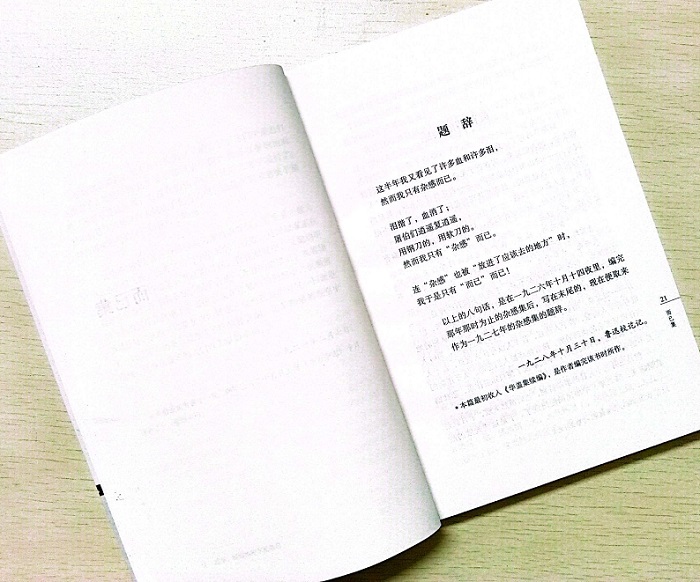 题 辞
这半年我又看见了许多血和许多泪,
然而我只有杂感而已。
泪揩了,血消了;
屠伯们逍遥复逍遥,
用钢刀的,用软刀的。
然而我只有“杂感”而已。
连“杂感”也被“放进了应该去的地方”时,
我于是只有“而已”而已!
以上的八句话,是在一九二六年十月十四夜里,编完
那年那时为止的杂感集后,写在末尾的,现在便取来
作为一九二七年的杂感集的题辞。
一九二八年十月三十日,鲁迅校讫记。
*本篇最初收入《华盖集续编》,是作者编完该书时所作。
21
而已集